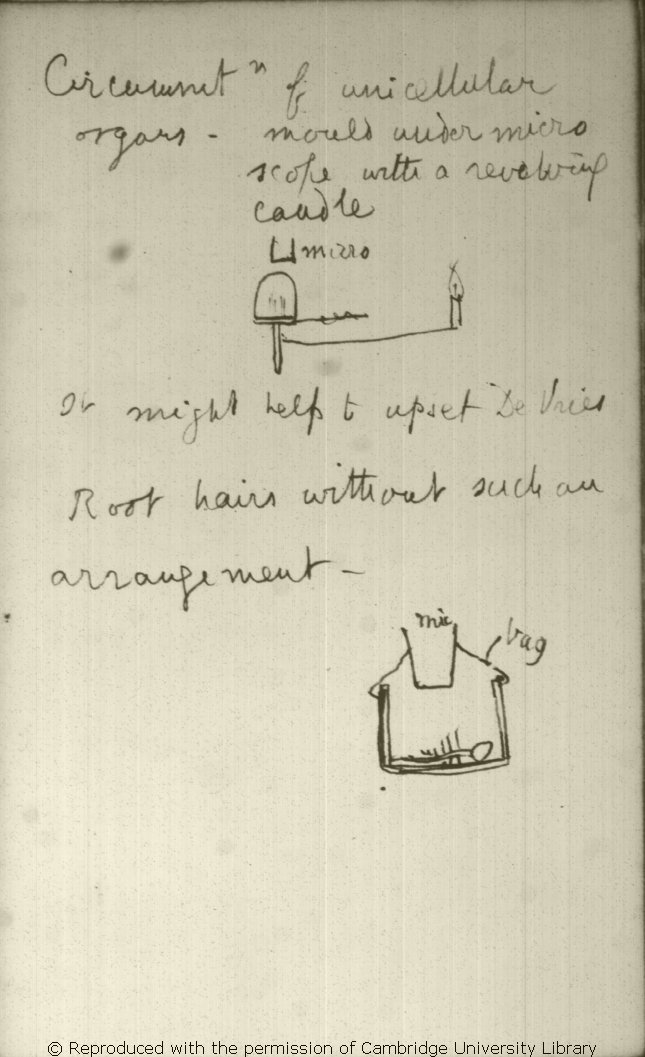 Circumnutn of unicellular
organs - mould under micro
scope with a revolving
candle
micro
It might help to upset De Vries
Root hairs without such an
arrangement -
mic
bag
© Reproduced with the permission of Cambridge University Library